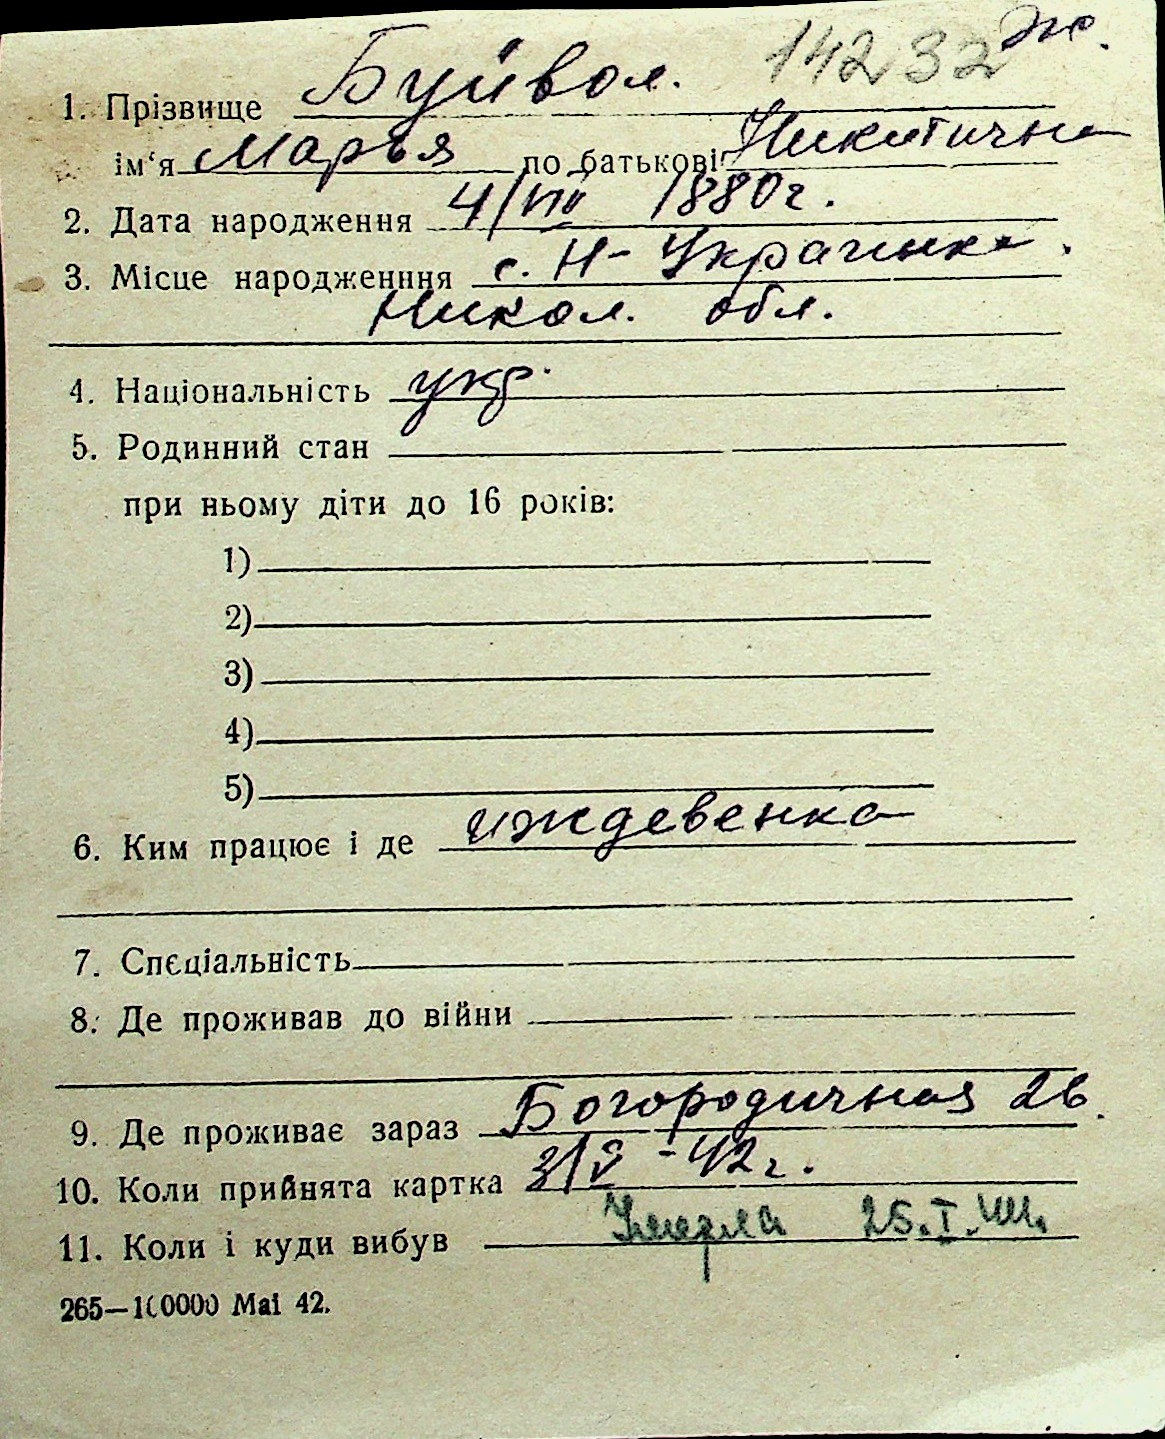 14232 Ж.
1. Прізвище Буйвол.
ім‘я Марья по батькові Никитична
2. Дата народження 4/VIII 1880 г.
3. Місце народженння с. Н-Украинка.
Никол. обл.
4. Національність укр.
5. Родинний стан
при ньому діти до 16 років:
1)
2)
3)
4)
5)
6. Ким працює і де иждевенка
7. Спєціальність
8. Де проживав до війни
9. Де проживає зараз Богородичная 26.
10. Коли прийнята картка 3/V-42 г.
11. Коли і куди вибув Умерла 25.I.
265—100000 Mai 42.